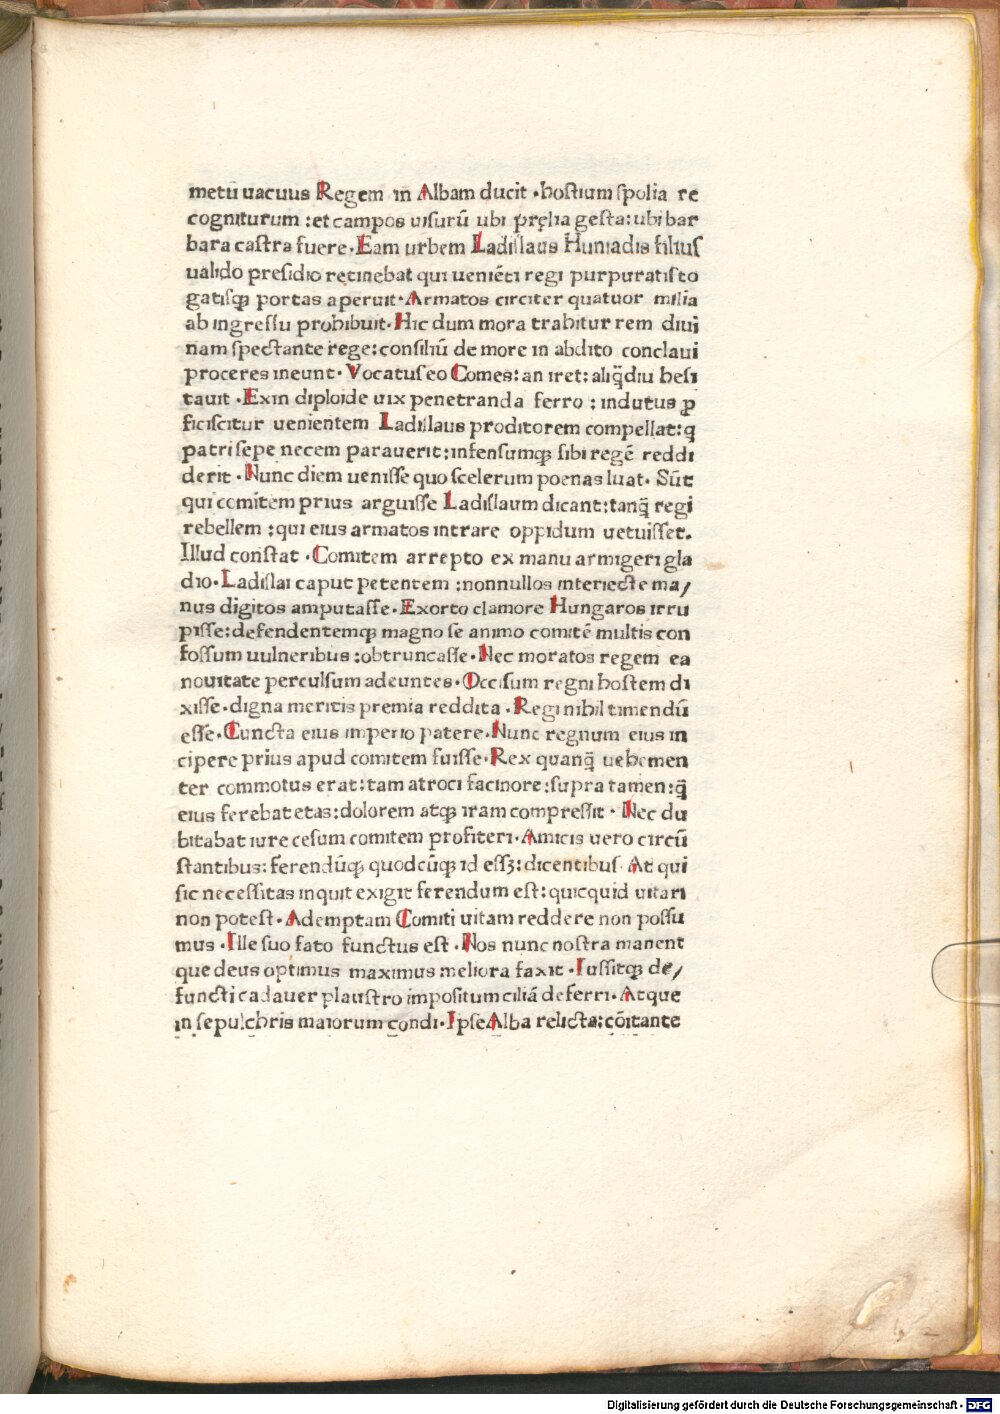 metū uacuus Regem in Albam ducit · hostium spolia re
cogniturum : et campos uisurū ubi pręlia gesta: ubi bar
bara castra fuere · Eam urbem Ladislaus Huniadis filius
ualido presidio retinebat qui ueniēti regi purpuratis to
gatisqꝫ portas aperuit · Armatos circiter quatuor milia
ab ingressu prohibuit · Hic dum mora trahitur rem diui
nam spectante rege: consiliū de more in abdito conclaui
proceres ineunt · Vocatus eo Comes: an iret: aliq̄diu hesi
tauit · Exin diploide uix penetranda ferro : indutus ꝓ
ficiscitur uenientem Ladislaus proditorem compellat: q
patri sepe necem parauerit: infensumqꝫ sibi regē reddi
derit · Nunc diem uenisse quo scelerum poenas luat · Sūt
qui comitem prius arguisse Ladislaum dicant: tanq̄ regi
rebellem : qui eius armatos intrare oppidum uetuisset.
Illud constat · Comitem arrepto ex manu armigeri gla
dio · Ladislai caput petentem : nonnullos interiecte ma/
nus digitos amputasse · Exorto clamore Hungaros irru
pisse: defendentemqꝫ magno se animo comitē multis con
fossum uulneribus : obtruncasse · Nec moratos regem ea
nouitate perculsum adeuntes · Occisum regni hostem di
xisse · digna meritis premia reddita · Regi nihil timendū
esse · Cuncta eius imperio patere · Nunc regnum eius in
cipere prius apud comitem fuisse · Rex quanq̄ uehemen
ter commotus erat: tam atroci facinore: supra tamen: q̄
eius ferebat etas: dolorem atqꝫ iram compressit · Nec du
bitabat iure cesum comitem profiteri · Amicis uero circū
stantibus: ferendūqꝫ quodcūqꝫ id essꝫ: dicentibus · At qui
sic necessitas inquit exigit ferendum est: quicquid uitari
non potest · Ademptam Comiti uitam reddere non possu
mus · Ille suo fato functus est · Nos nunc nostra manent
que deus optimus maximus meliora faxit · Iussitqꝫ de/
functi cadauer plaustro impositum ciliā deferri · Atque
in sepulchris maiorum condi · Ipse Alba relicta: cōitante
Digitalisierung gefördert durch die Deutsche Forschungsgemeinschaft - DFG